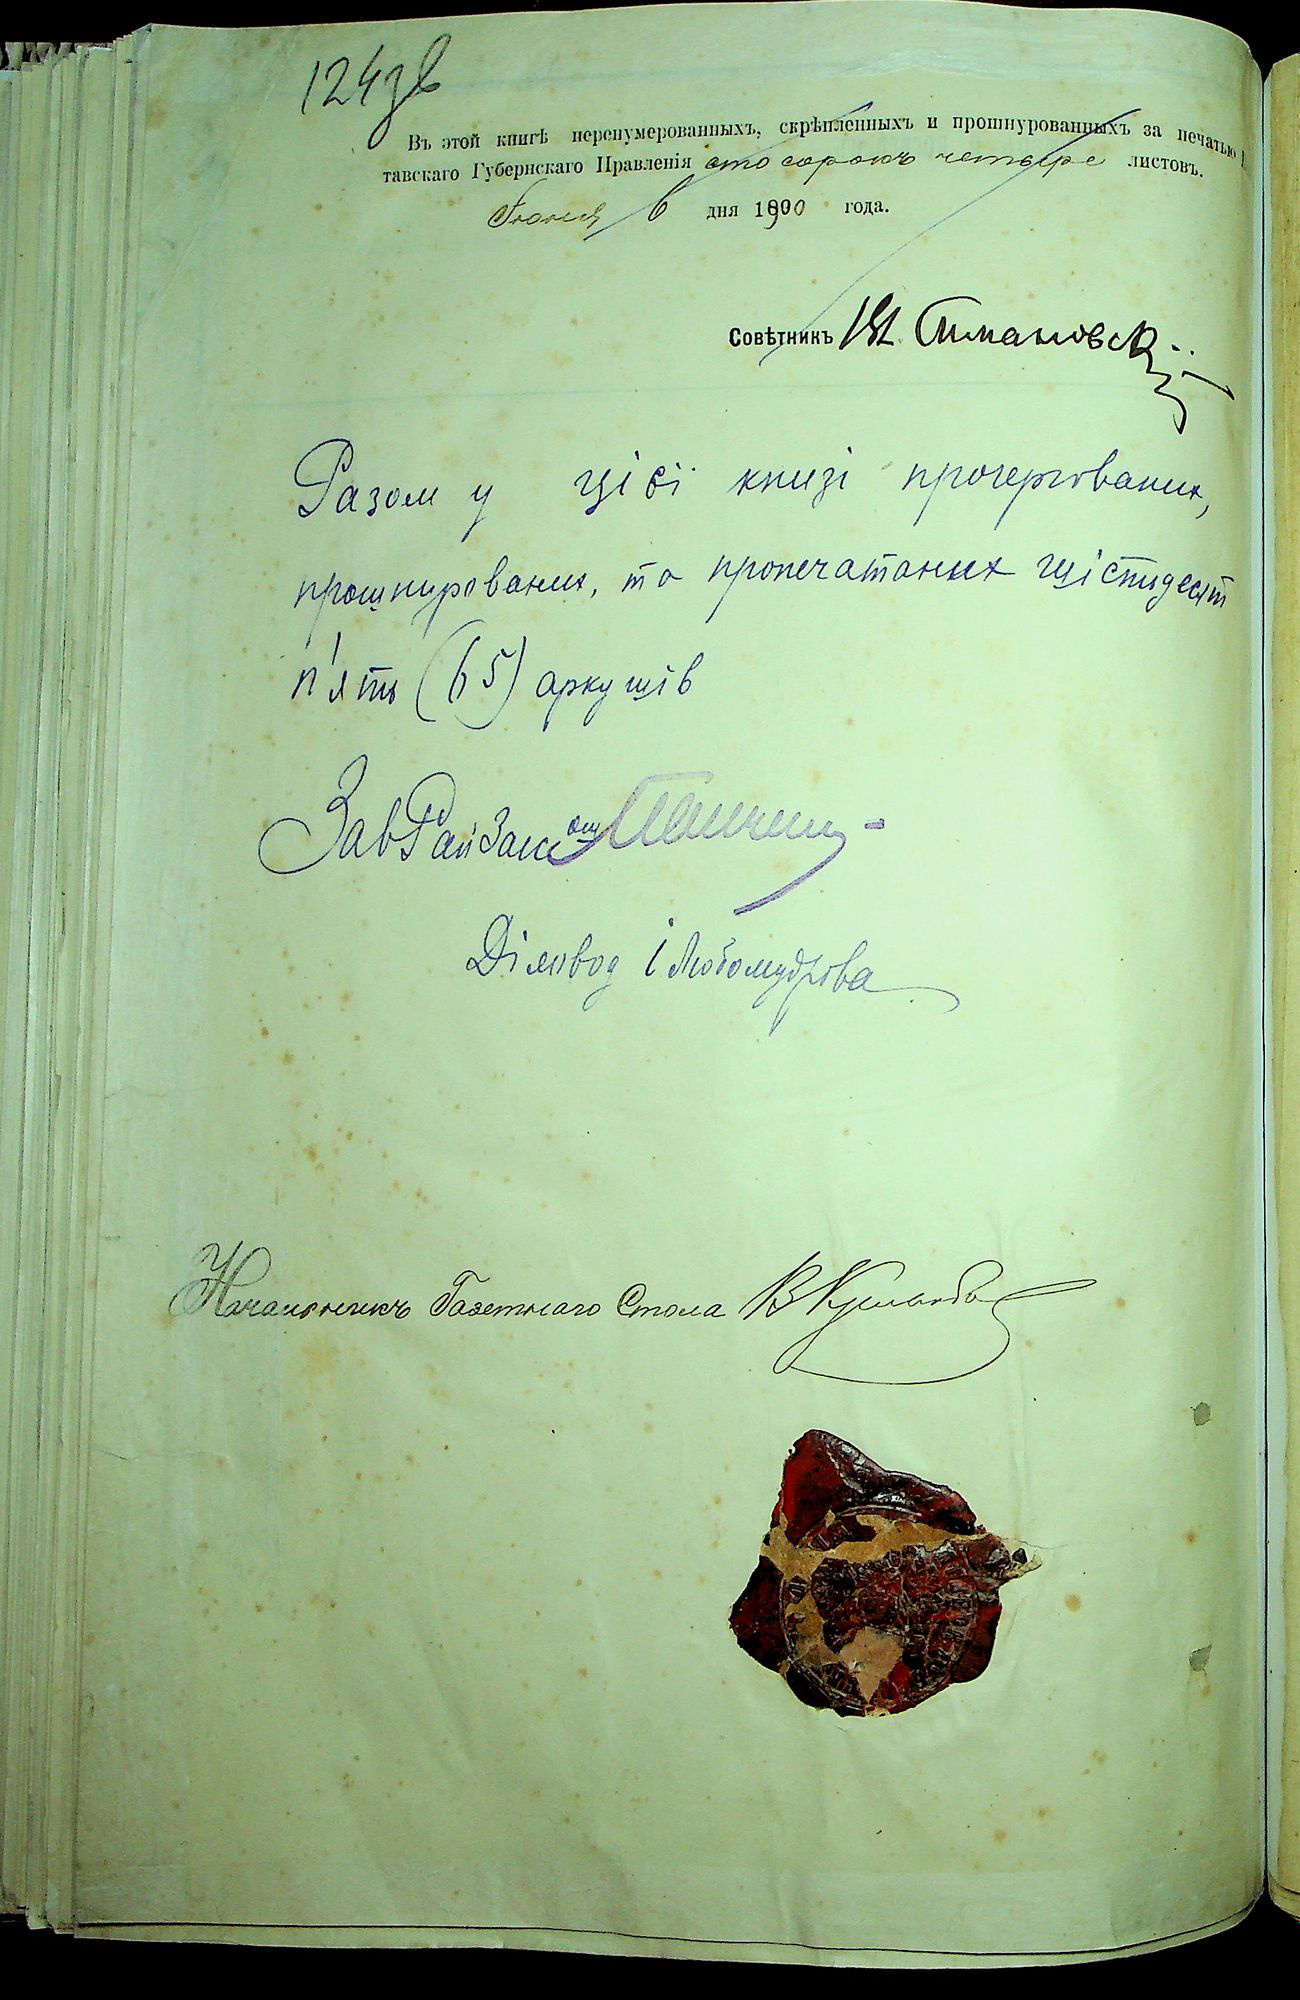 124зв
Въ этой книгѣ перенумерованныхъ, скрѣпленныхъ и прошнурованныхъ за печатью
тавскаго Губернскаго Правленія сто сорокъ четыре листовъ.
Іюня 6 дня 1900 года.
Совѣтникъ
Разом у цієї книзі прочергованих,
прошнурованих, та пропечатаних шістидесят
п'ять (65) аркушів
ЗавРайЗаг
Діловод І Любомудрова
Начальникъ Газетнаго Стола